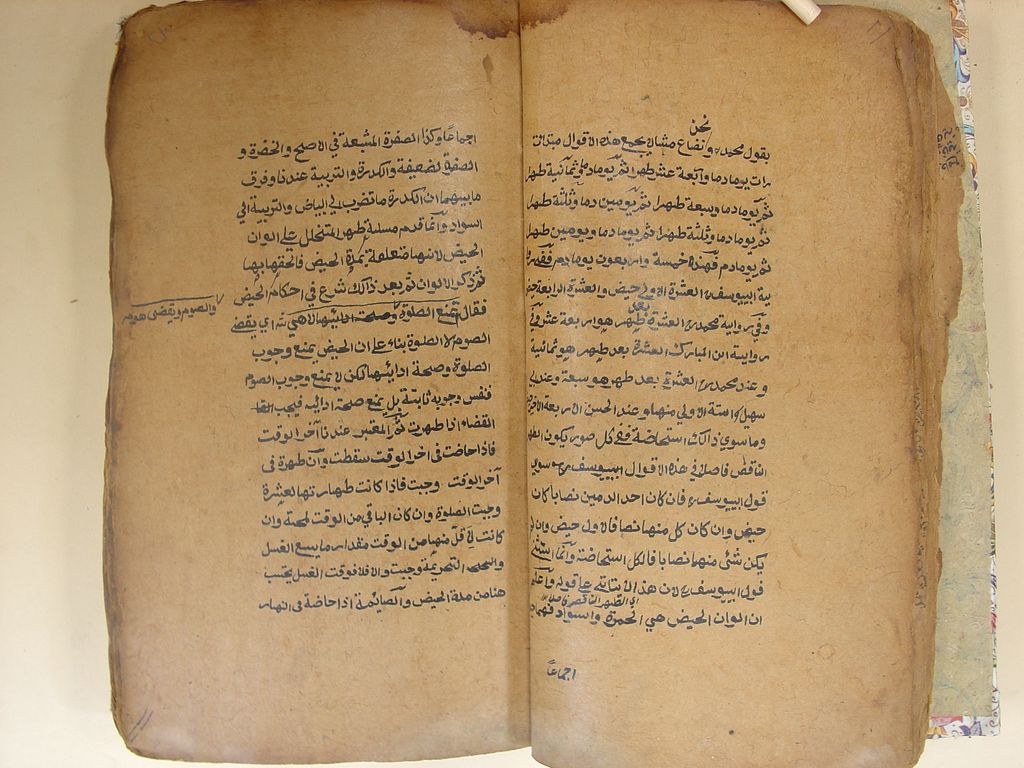 نحن
بقول محمد ره ونضاع مثالا يجمع هذه الاقوال مبتداة
رات يوما دما واربعة عشر طهرا ثم يوما دما وثمانية طهرا
ثم يوما دما وسبعة طهرا ثم يومين دما وثلثة طهرا
ثم يوما دما وثلثة طهرا ثم يوما دما ويومين طهرا
ثم يوما دم فهذه خمسة واربعون يوما دم ففي روا
ية ابي يوسف ره العشرة الاولي حيض والعشرة الرابعة حيض
وفي رواية محمد ره العشرة بعد طهر هو اربعة عشر في
رواية ابن المبارك العشرة بعد طهر هو ثمانية
وعند محمد ره العشرة بعد طهر هو سبعة وعند ابي
سهيل الستة الاولي منها وعند الحسن الاربعة الاخيرة
وما سوي ذالك استحاضة ففي كل صورة يكون الطهر
الناقص فاصلا في هذه الاقوال ابي يوسف ره سوي
قول ابي يوسف ره فان كان احد الدمين نصابا كان
حيض وان كان كل منها نصا فالاول حيض وان لم
يكن شئ منها نصابا فالكل استحاضة وانما استثني
قول ابي يوسف ره لان هذا لا يتاتي علي قوله واعلم
اي الطهر الناقص فاصلا
ان الوان الحيض هي الحمرة والسواد فهما
اجماعا
اجماعا وكذا الصفرة المشبعة في الاصح والخضرة و
الصفرة الضعيفة والكدرة والتربية عندنا وفرق
ما بينهما ان الكدرة ما تضرب الي البياض والتربية الي
السواد وانما قدم مسئلة طهر المتخلل علي الوان
الحيض لانها متعلقة بمدة الحيض فالحقها بها
ثم ذكر الالوان ثم بعد ذالك شرع في احكام الحيض
فقال تمنع الصلوة وصحت ادائيها لاهي اي يقضي
والصوم ويقضي هو
الصوم لا الصلوة بناء علي ان الحيض يمنع وجوب
الصلوة وصحة ادائيها لكن لا يمنع وجوب الصوم
فنفس وجوبه ثابتة بل يمنع صحة ادائيه فيجب
القضاء اذا طهرت ثم المعتبر عندنا آخر الوقت
فاذا حاضت في اخر الوقت سقطت وان طهرة في
آخر الوقت وجبت فاذا كانت طهارتها لعشرة
وجبت الصلوة وان كان الباقي من الوقت لمحة وان
كانت لاقل منها من الوقت مقدار ما يسع الغسل
والتحريمة وجبت والا فلا فوقت الغسل يحتسب
هنا من مدة الحيض والصائمة اذا حاضة في النهار